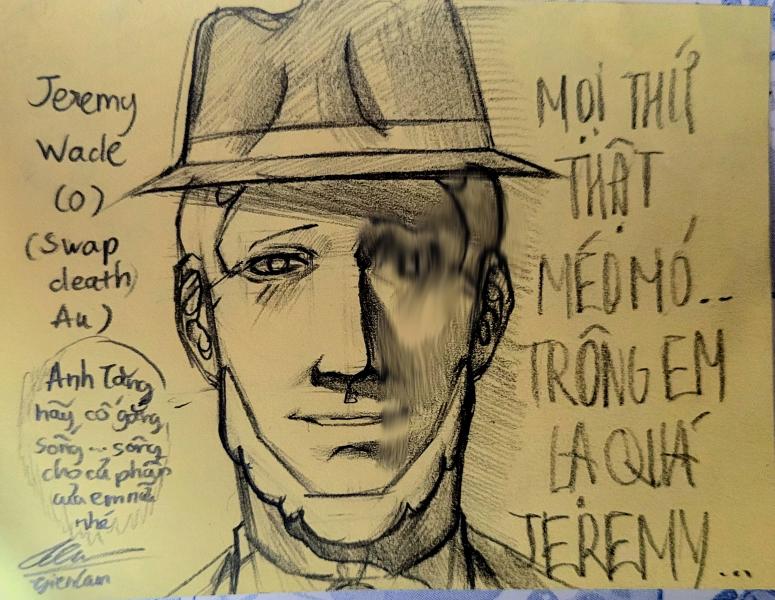 Jeremy
Wade
(O)
(Swap
death
Au)
Anh Tăng
hãy cố gắng
sống... sống
cho cả phần
của em nữa
nhé
MỌI THỨ
THẬT
MÉO MÓ..
TRÔNG EM
LẠ QUÁ
JEREMY...